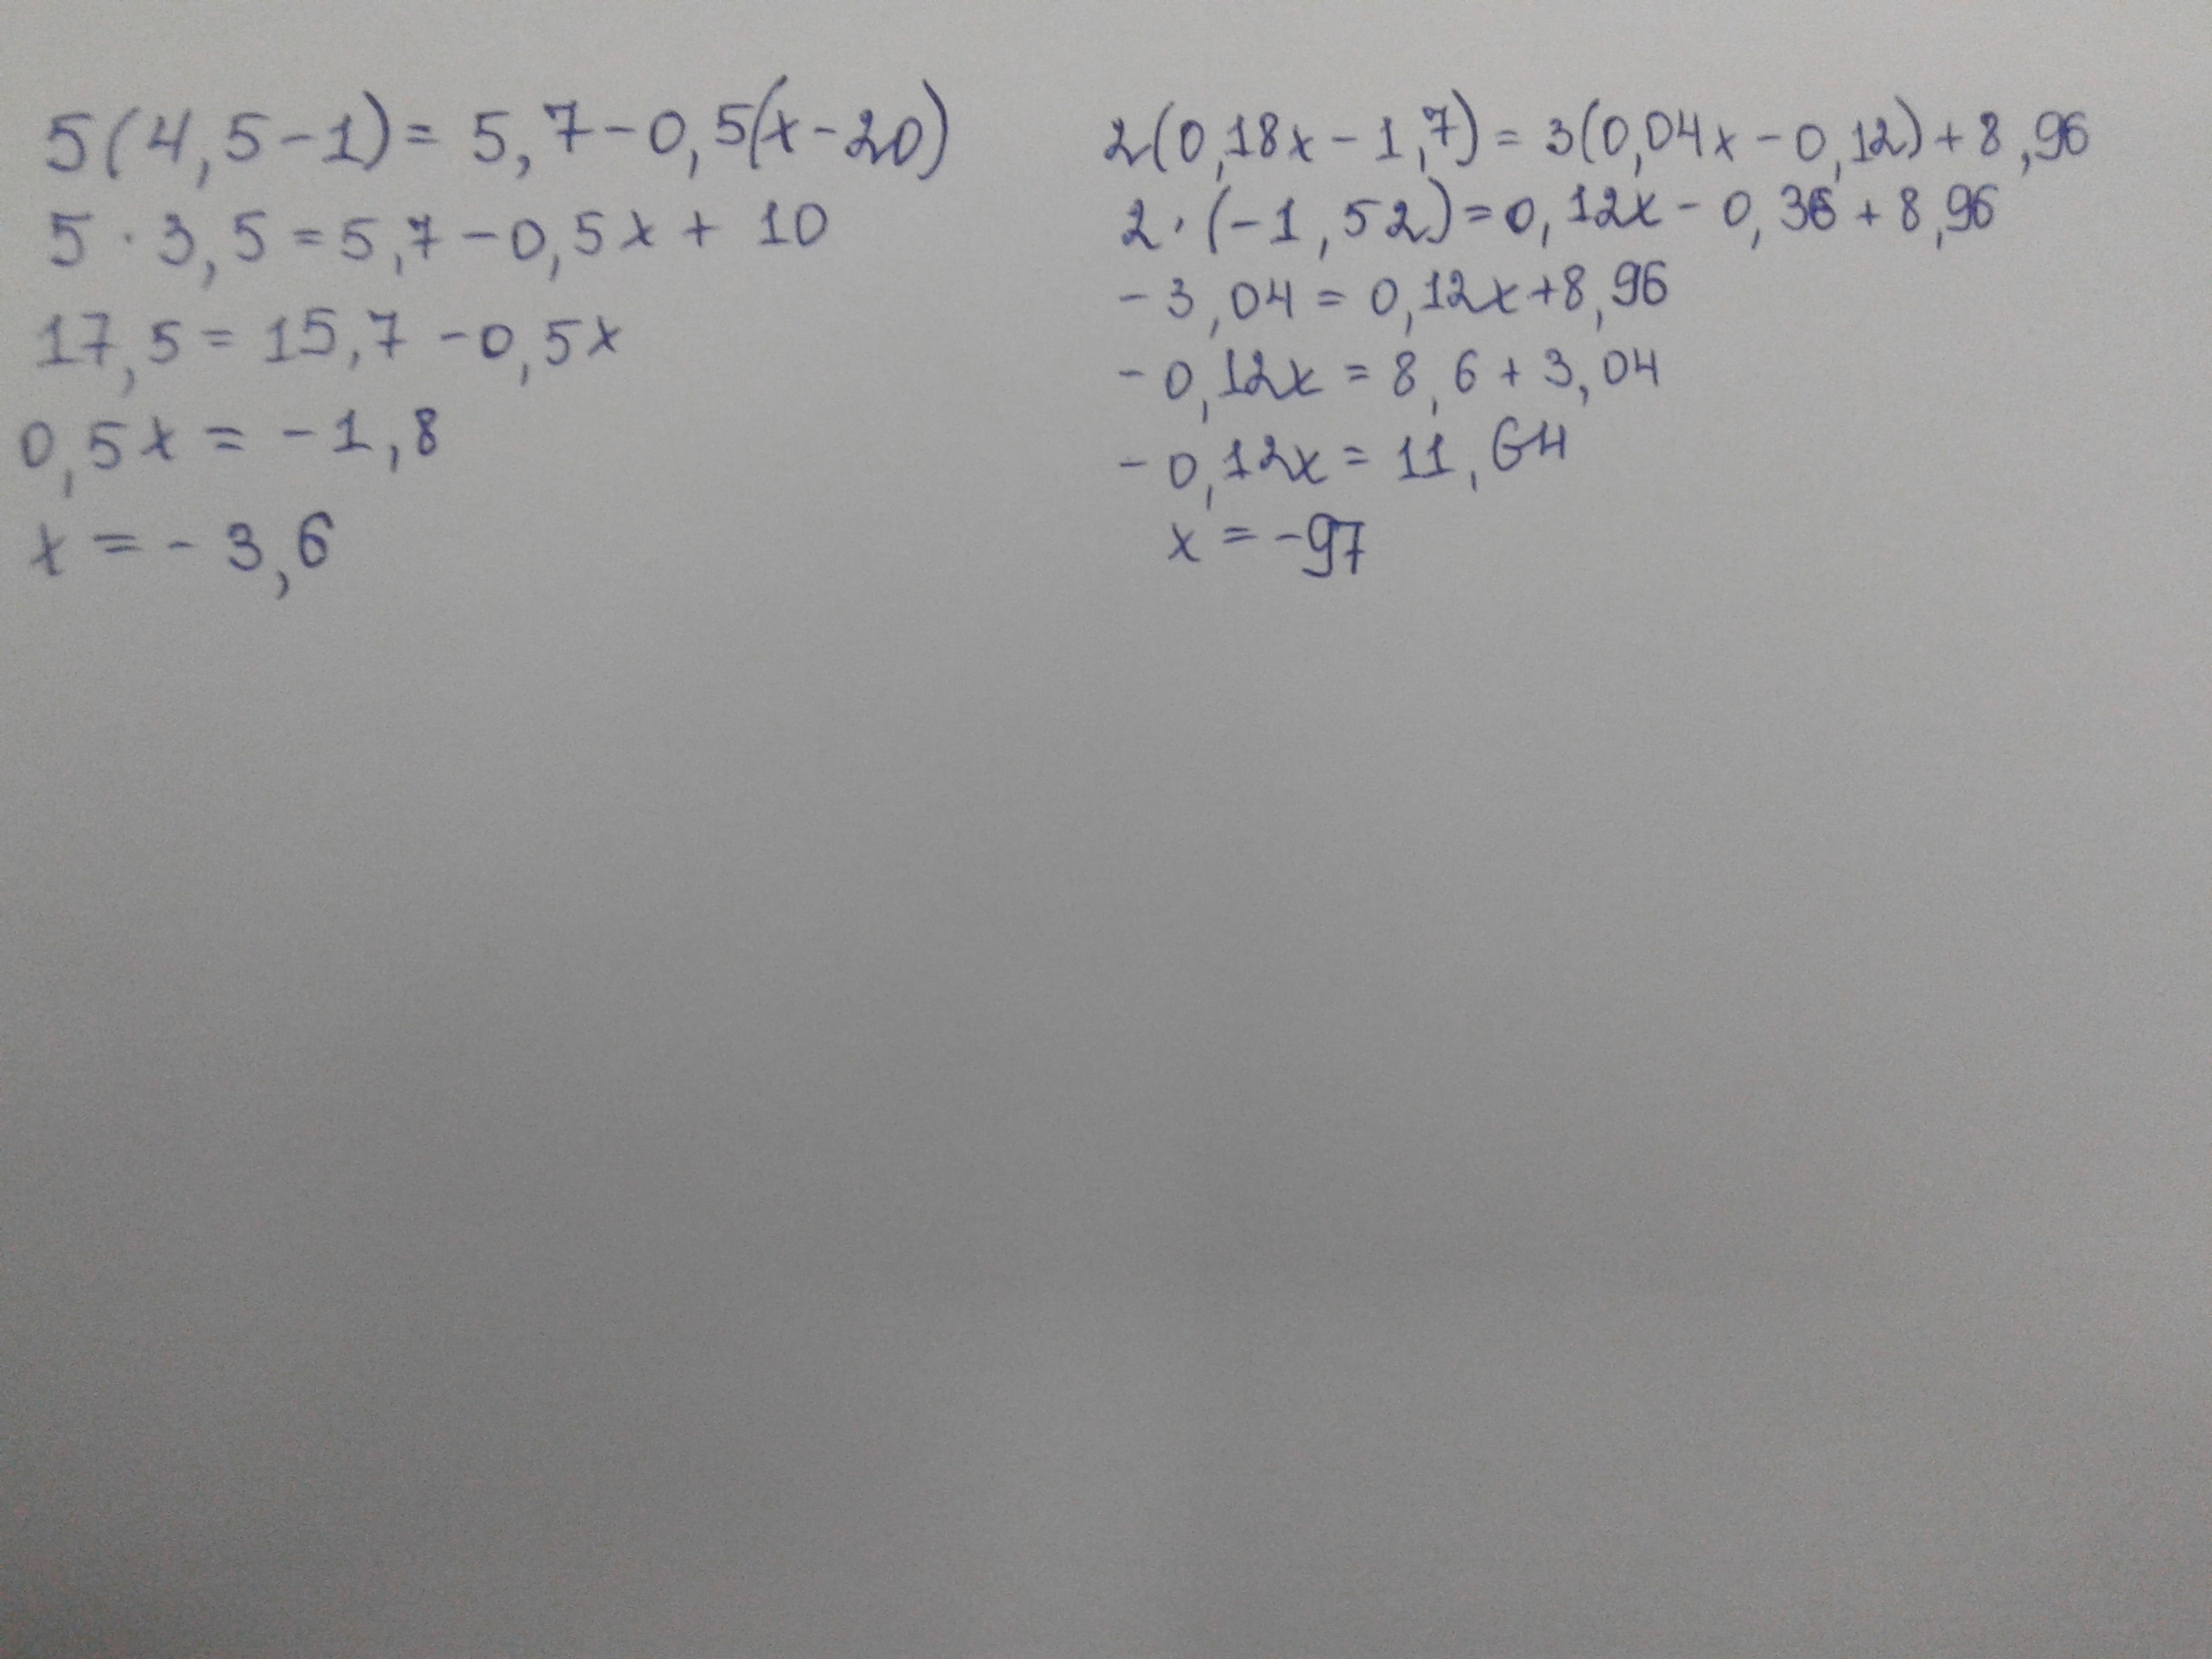 5(4,5-1)=5,7-0,5(x-20)
5·3,5=5,7-0,5x+10
17,5=15,7-0,5x
0,5x=-1,8
x=-3,6
2(0,18x-1,7)=3(0,04x-0,12)+8,96
2·(-1,52)=0,12x-0,36+8,96
-3,04=0,12x+8,96
-0,12x=8,6+3,04
-0,12x=11,64
x=-97